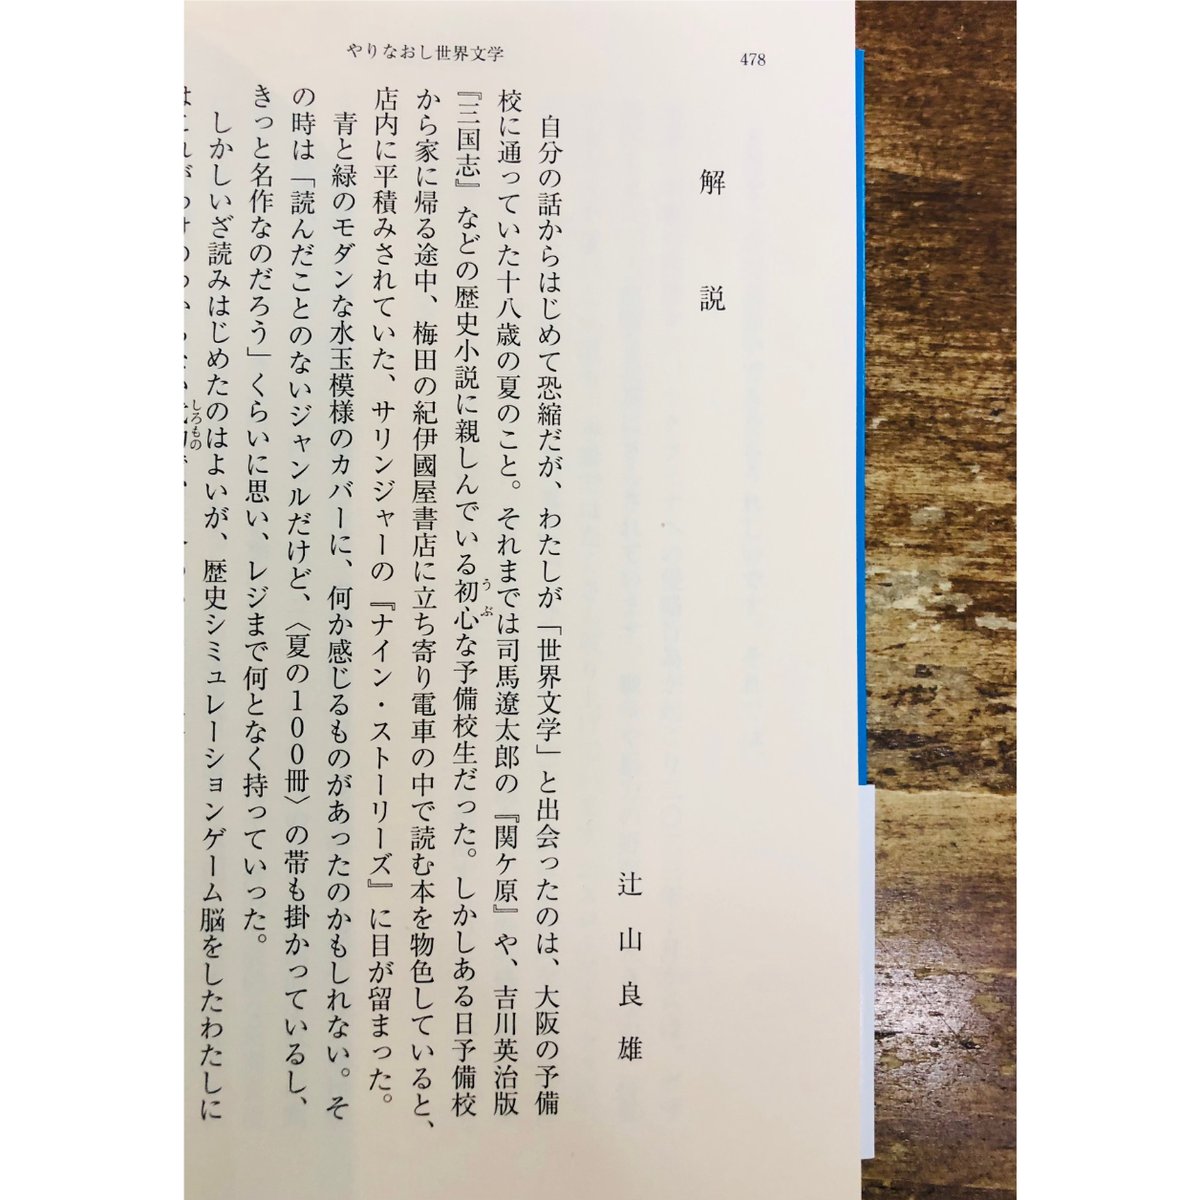 やりなおし世界文学
478
解説
辻山良雄
自分の話からはじめて恐縮だが、わたしが「世界文学」と出会ったのは、大阪の予備
校に通っていた十八歳の夏のこと。それまでは司馬遼太郎の『関ケ原』や、吉川英治版
『三国志』などの歴史小説に親しんでいる初心な予備校生だった。しかしある日予備校
うぶ
から家に帰る途中、梅田の紀伊國屋書店に立ち寄り電車の中で読む本を物色していると、
店内に平積みされていた、サリンジャーの『ナイン・ストーリーズ』に目が留まった。
青と緑のモダンな水玉模様のカバーに、何か感じるものがあったのかもしれない。そ
の時は「読んだことのないジャンルだけど、〈夏の100冊〉の帯も掛かっているし、
きっと名作なのだろう」くらいに思い、レジまで何となく持っていった。
しかしいざ読みはじめたのはよいが、歴史シミュレーションゲーム脳をしたわたしに
しろもの